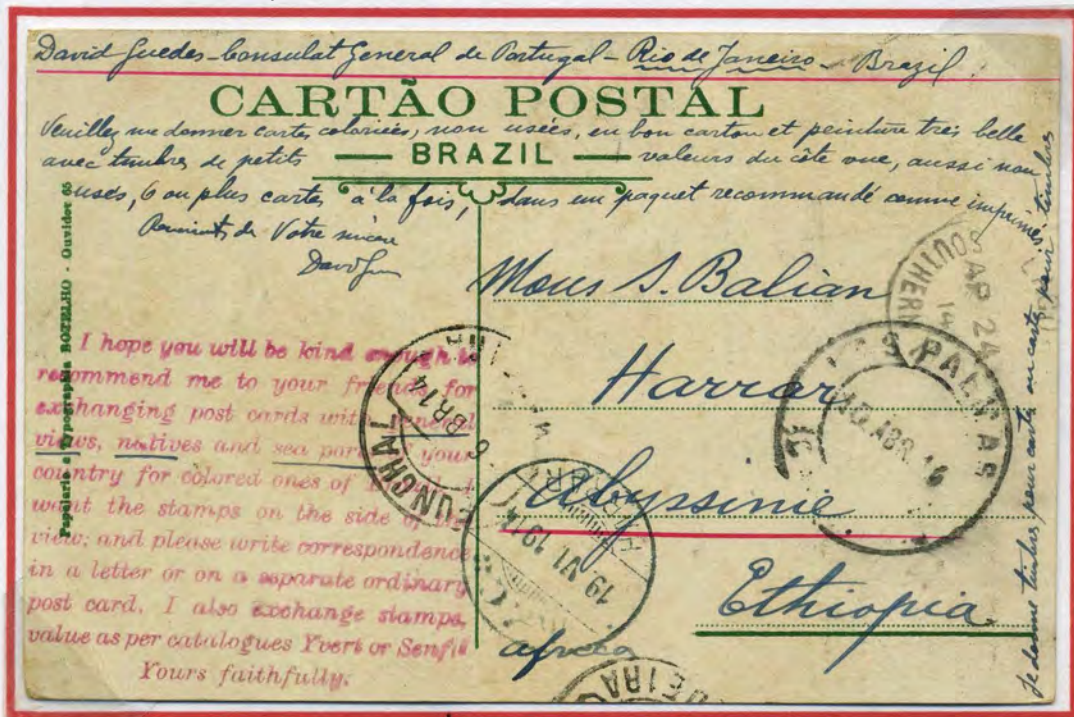 David Guedes - Consulat General de Portugal - Rio de Janeiro - Brazil
CARTÃO POSTAL
BRAZIL
Veuillez me donner cartes coloriées, non usées, en bon carton et peinture très belle
avec timbres de petits valeurs du côte vue, aussi non
usés, 6 ou plus cartes à la fois, dans un paquet recommandé comme imprimés.
de Votre sincère
David
Je donne timbres pour cartes ou cartes pour timbres
Papelaria e Typographia BOTELHO - Ouvidor 65
I hope you will be kind enough to
recommend me to your friends for
exchanging post cards with general
views, natives and sea ports of your
country for colored ones of Brazil. I
want the stamps on the side of the
view; and please write correspondence
in a letter or on a separate ordinary
post card. I also exchange stamps,
value as per catalogues Yvert or Senf.
Yours faithfully.
Mons S. Balian
Harrar
Abyssinie
Ethiopia
Africa
SOUTHERN
AP 24
14
LAS PALMAS
10 ABR. 14
FUNCHAL
6 ABR 14
HARAR
19 VI 1914